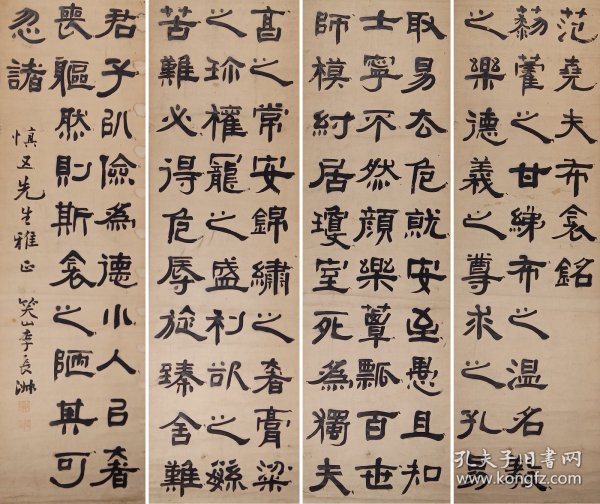 范堯夫布衾銘
藜藿之甘綈布之温名教
之樂德義之尊求之孔易
取易去危就安至愚且知
士寧不然顏樂簞瓢百世
師模紂居瓊室死為獨夫
享之常安錦繡之奢膏粱
之珍權寵之盛利欲之繇
苦難必得危辱旋臻舍難
君子以儉為德小人以奢
喪軀然則斯衾之陋其可
忽諸
慎五先生雅正 笑山李長
孔夫子旧书网
www.kongfz.com